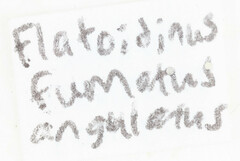 Flatoidinus
fumatus
angulatus